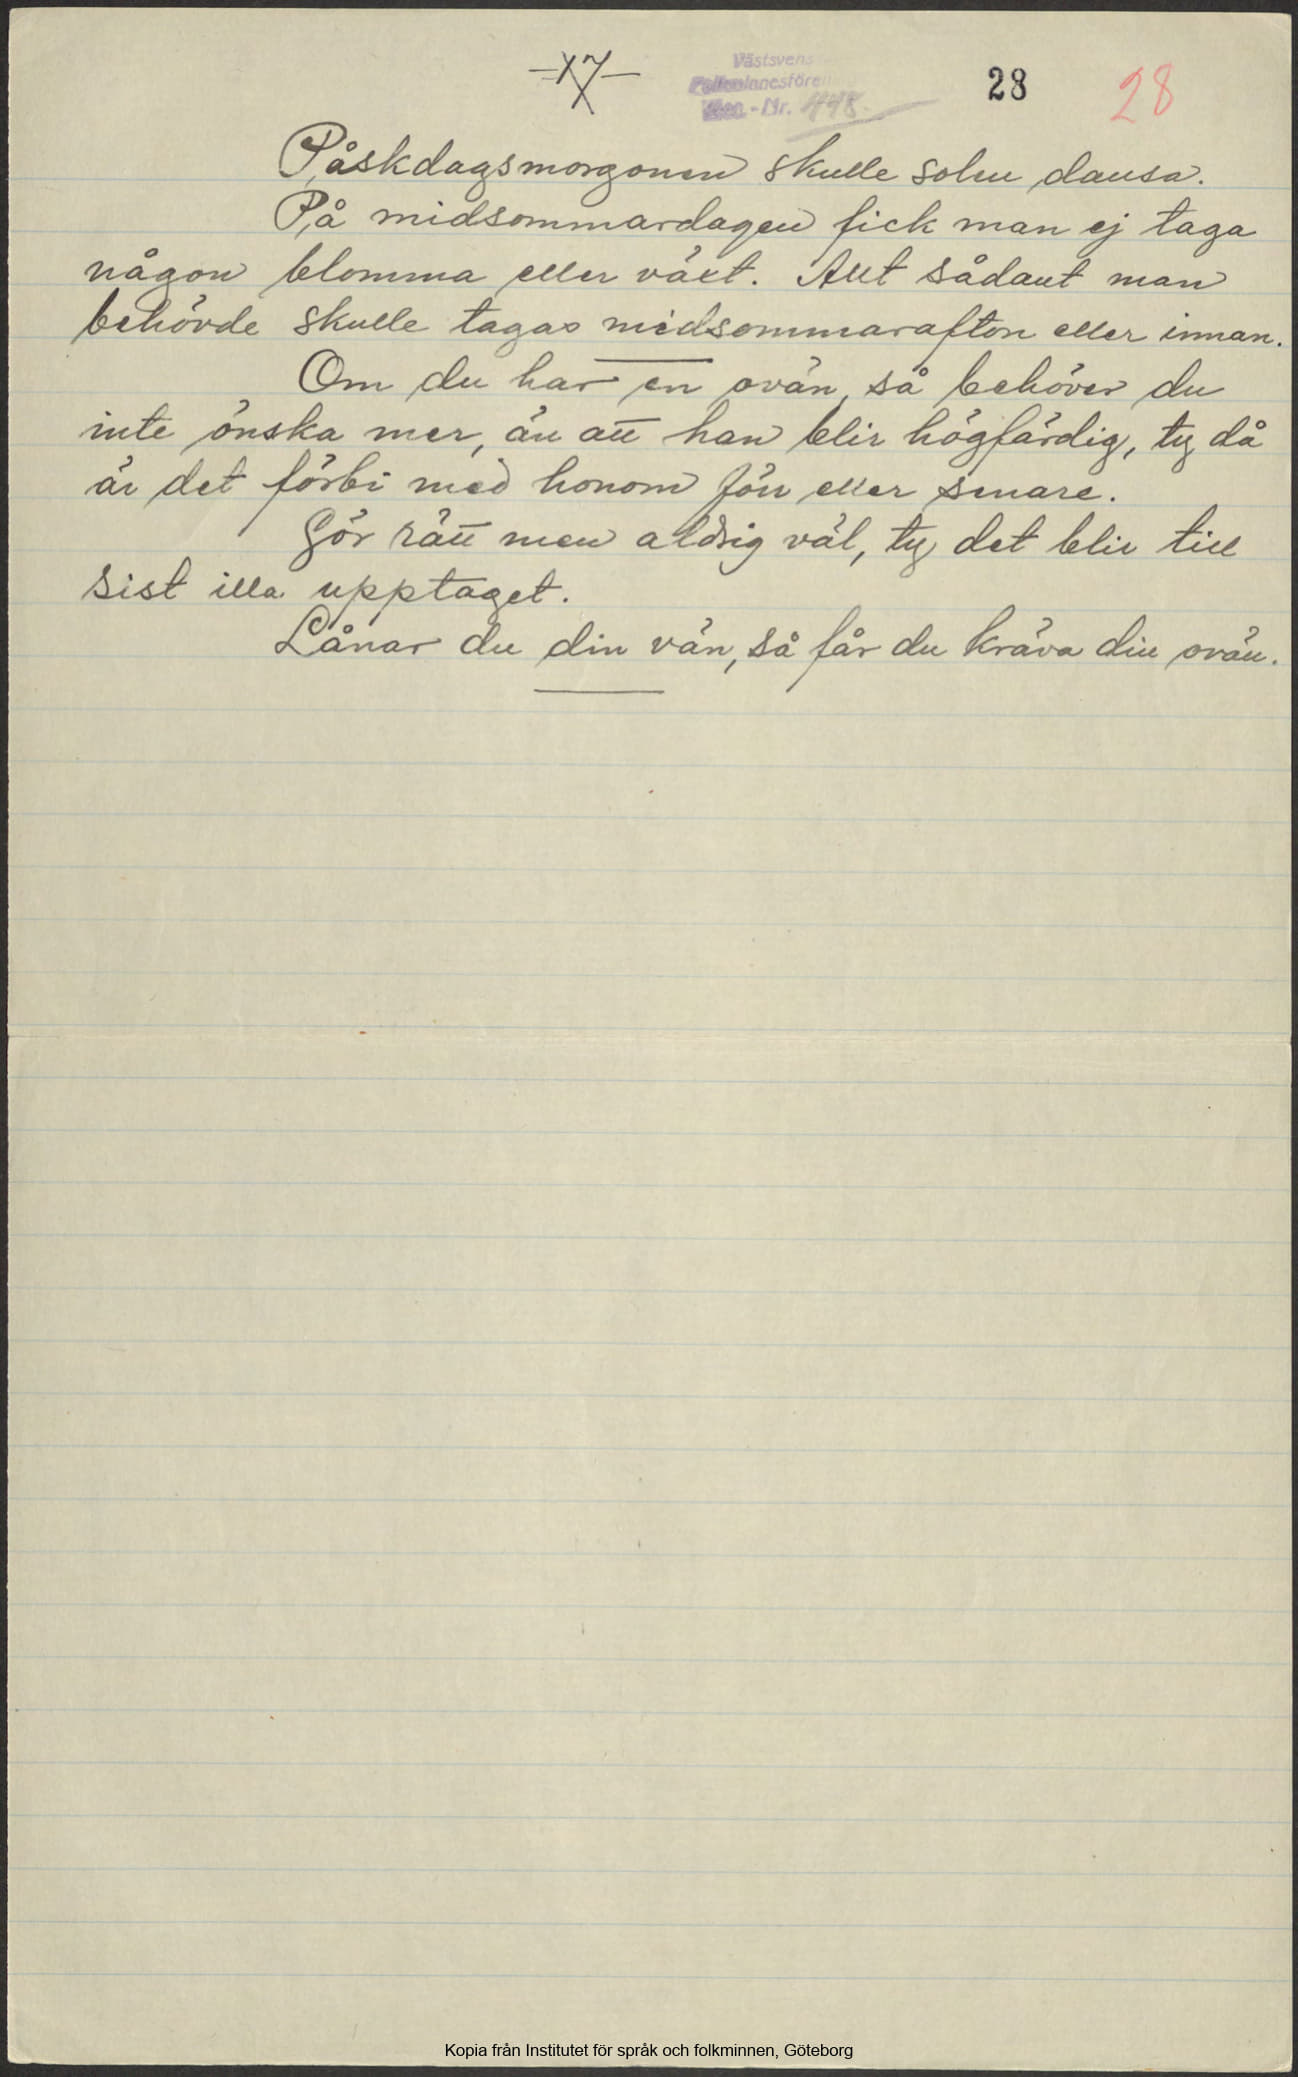 -17-
Västsvens
Folkminnesfören
Acc. - Nr. 448.
28
28
Påskdagsmorgonen skulle solen dansa.
På midsommardagen fick man ej taga
någon blomma eller växt. Allt sådant man
behövde skulle tagas midsommarafton eller innan.
Om du har en ovän, så behöver du
inte önska mer, än att han blir högfärdig, ty då
är det förbi med honom förr eller senare.
Gör rätt men aldrig väl, ty det blir till
sist illa upptaget.
Lånar du din vän, så får du kräva din ovän.
Kopia från Institutet för språk och folkminnen, Göteborg